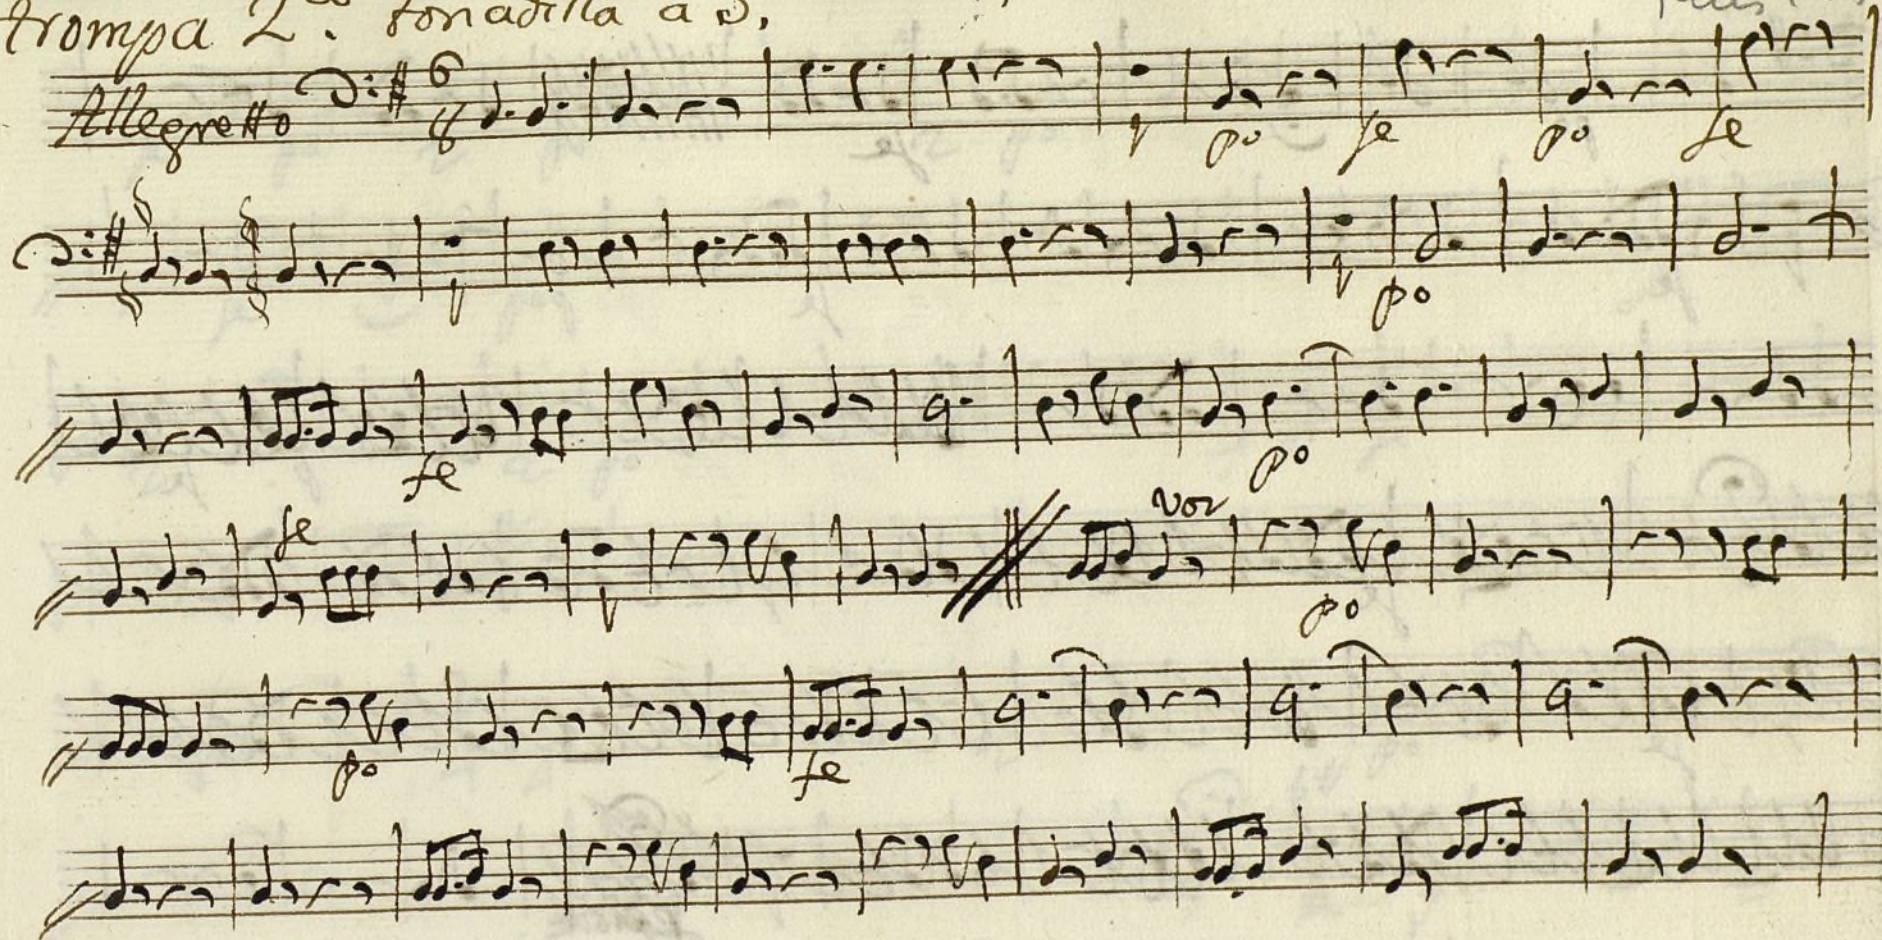 trompa 2.ª tonadilla a 3.
Allegretto 6 8
po fe po fe
po
fe po
fe voz
po
po fe